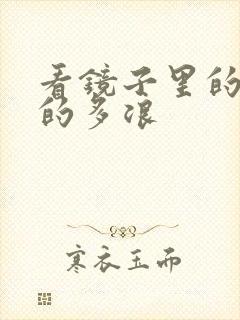 看镜子里的
的多浪
寒衣玉而